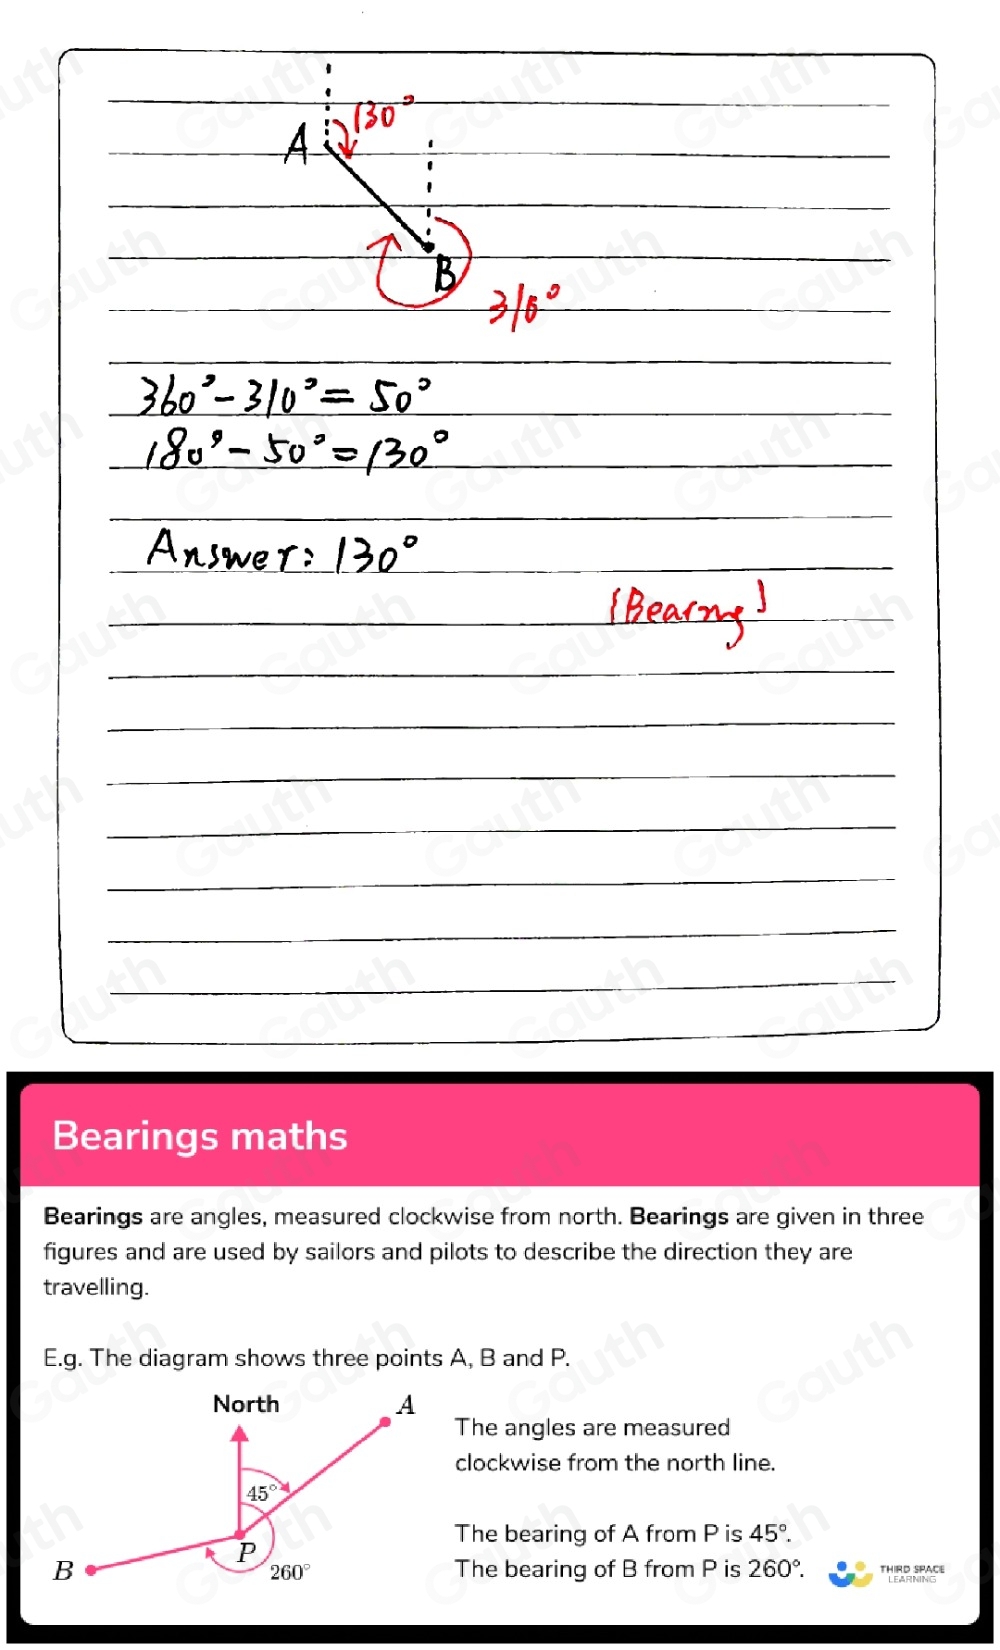 130°
A
B
310°
360° - 310° = 50°
180° - 50° = 130°
Answer: 130°
[Bearing]
Bearings maths
Bearings are angles, measured clockwise from north. Bearings are given in three
figures and are used by sailors and pilots to describe the direction they are
travelling.
E.g. The diagram shows three points A, B and P.
North
A
The angles are measured
clockwise from the north line.
45°
The bearing of A from P is 45°.
P
B
260°
The bearing of B from P is 260°.
THIRD SPACE
LEARNING
Gauth